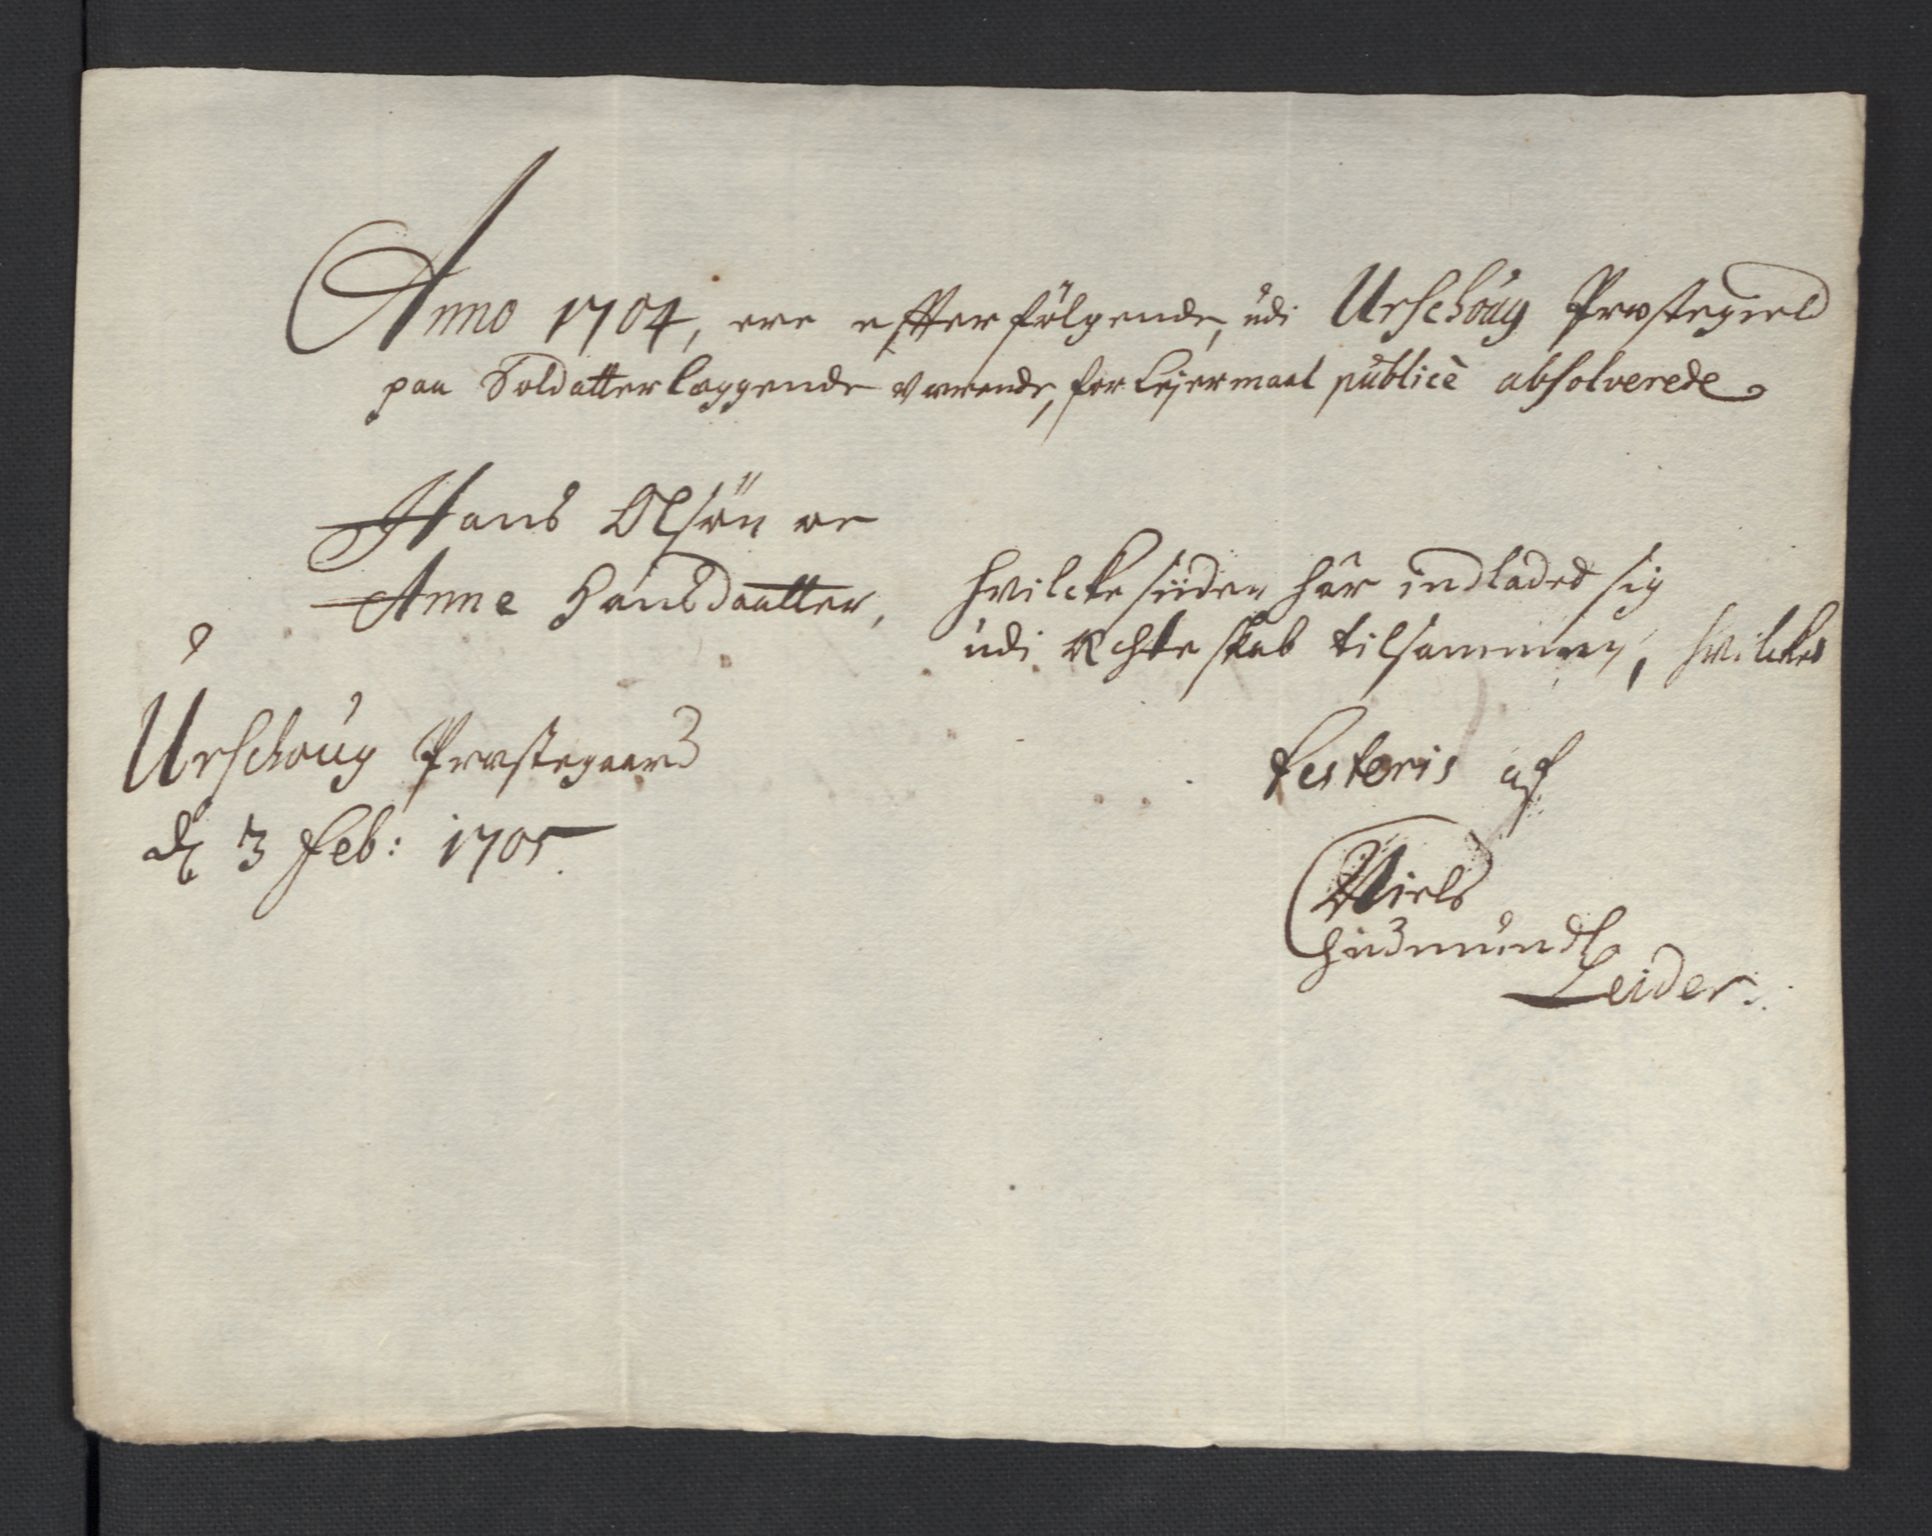 Anno 1704, ere effterfølgende, udi Urschoug Præstegield
paa Soldatterlæggende værende, for Lejermaal publicè absolverede
Hans Olsøn oc
Anne Hansdaatter, hvilcke siiden har indladed sig
udi Echteskab tilsammen, hvilcket
Urschoug Præstegaard
testeris af
d 3 Feb: 1705.
Niels
Leider.